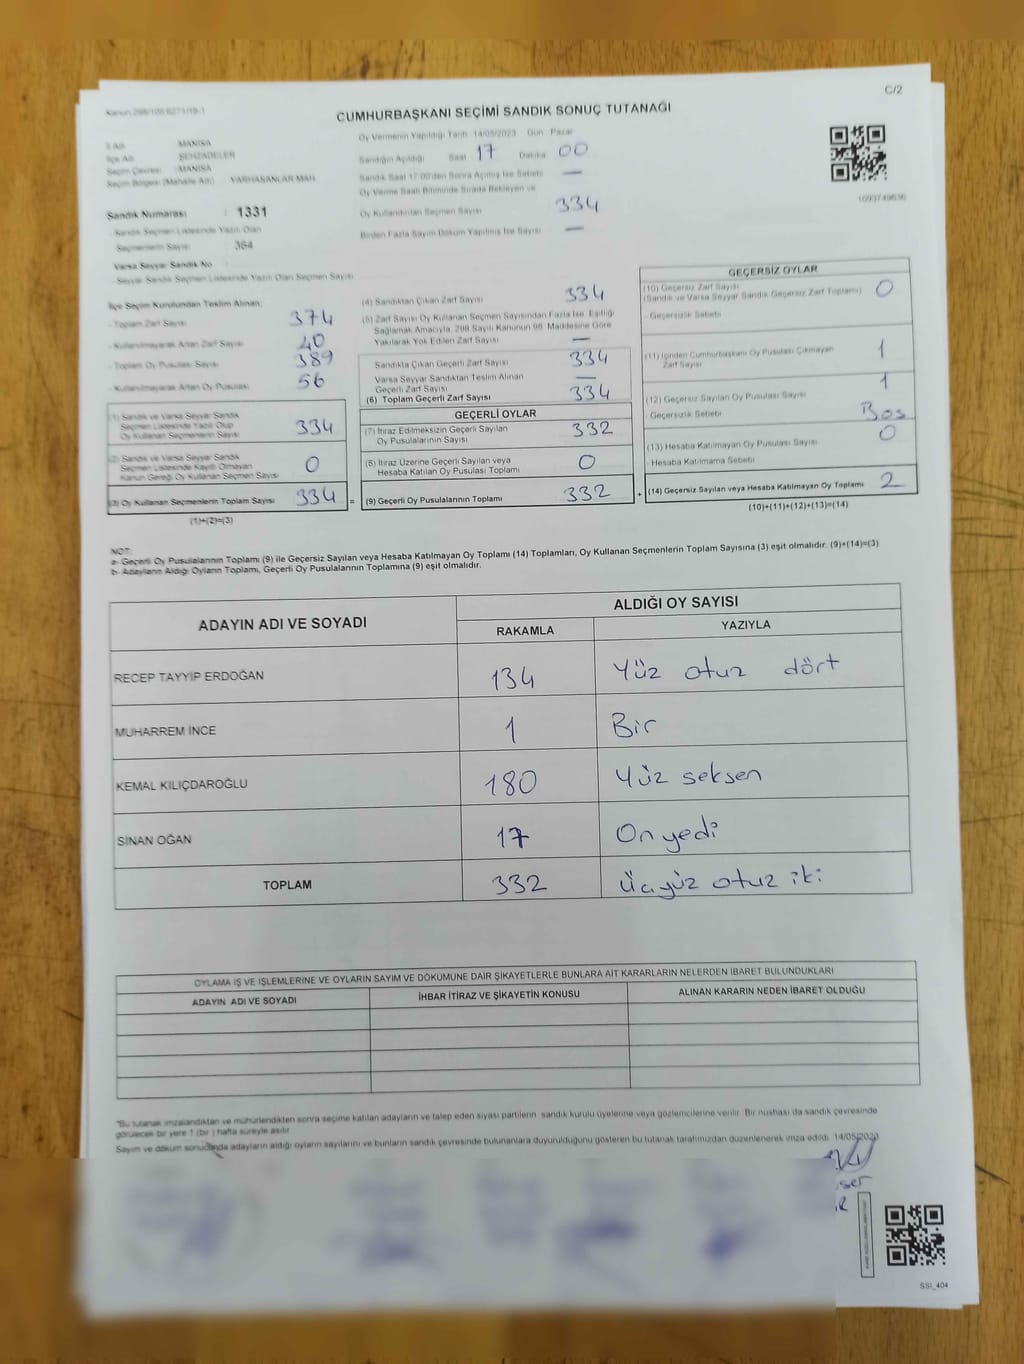 C/2
Kanun 298/105.6271/19-1
CUMHURBAŞKANI SEÇİMİ SANDIK SONUÇ TUTANAĞI
İl Adı MANİSA
İlçe Adı ŞEHZADELER
Seçim Çevresi MANİSA
Seçim Bölgesi (Mahalle Adı) YARHASANLAR MAH.
Sandık Numarası : 1331
- Sandık Seçmen Listesinde Yazılı Olan
Seçmenlerin Sayısı 364
Varsa Seyyar Sandık No
- Seyyar Sandık Seçmen Listesinde Yazılı Olan Seçmen Sayısı
Oy Vermenin Yapıldığı Tarih 14/05/2023 Gün Pazar
Sandığın Açıldığı Saat 17 Dakika 00
Sandık Saat 17:00'den Sonra Açılmış İse Sebebi —
Oy Verme Saati Bitiminde Sırada Bekleyen ve
Oy Kullandırılan Seçmen Sayısı 334
Birden Fazla Sayım Döküm Yapılmış İse Sayısı —
1093749636
İlçe Seçim Kurulundan Teslim Alınan;
- Toplam Zarf Sayısı 374
- Kullanılmayarak Artan Zarf Sayısı 40
- Toplam Oy Pusulası Sayısı 389
- Kullanılmayarak Artan Oy Pusulası 56
(1) Sandık ve Varsa Seyyar Sandık
Seçmen Listesinde Yazılı Olup
Oy Kullanan Seçmenlerin Sayısı 334
(2) Sandık ve Varsa Seyyar Sandık
Seçmen Listesinde Kayıtlı Olmayan
Kanun Gereği Oy Kullanan Seçmen Sayısı 0
(3) Oy Kullanan Seçmenlerin Toplam Sayısı 334 =
(1)+(2)=(3)
(4) Sandıktan Çıkan Zarf Sayısı 334
(5) Zarf Sayısı Oy Kullanan Seçmen Sayısından Fazla İse, Eşitliği
Sağlamak Amacıyla, 298 Sayılı Kanunun 98. Maddesine Göre
Yakılarak Yok Edilen Zarf Sayısı —
Sandıkta Çıkan Geçerli Zarf Sayısı 334
Varsa Seyyar Sandıktan Teslim Alınan
Geçerli Zarf Sayısı —
(6) Toplam Geçerli Zarf Sayısı 334
GEÇERLİ OYLAR
(7) İtiraz Edilmeksizin Geçerli Sayılan
Oy Pusulalarının Sayısı 332
(8) İtiraz Üzerine Geçerli Sayılan veya
Hesaba Katılan Oy Pusulası Toplamı 0
(9) Geçerli Oy Pusulalarının Toplamı 332 +
GEÇERSİZ OYLAR
(10) Geçersiz Zarf Sayısı
(Sandık ve Varsa Seyyar Sandık Geçersiz Zarf Toplamı) 0
- Geçersizlik Sebebi
(11) İçinden Cumhurbaşkanı Oy Pusulası Çıkmayan
Zarf Sayısı 1
(12) Geçersiz Sayılan Oy Pusulası Sayısı 1
Geçersizlik Sebebi Boş
(13) Hesaba Katılmayan Oy Pusulası Sayısı 0
Hesaba Katılmama Sebebi
(14) Geçersiz Sayılan veya Hesaba Katılmayan Oy Toplamı 2
(10)+(11)+(12)+(13)=(14)
NOT:
a- Geçerli Oy Pusulalarının Toplamı (9) ile Geçersiz Sayılan veya Hesaba Katılmayan Oy Toplamı (14) Toplamları, Oy Kullanan Seçmenlerin Toplam Sayısına (3) eşit olmalıdır. (9)+(14)=(3)
b- Adayların Aldığı Oyların Toplamı, Geçerli Oy Pusulalarının Toplamına (9) eşit olmalıdır.
ADAYIN ADI VE SOYADI ALDIĞI OY SAYISI
RAKAMLA YAZIYLA
RECEP TAYYİP ERDOĞAN 134 Yüz otuz dört
MUHARREM İNCE 1 Bir
KEMAL KILIÇDAROĞLU 180 Yüz seksen
SİNAN OĞAN 17 On yedi
TOPLAM 332 Üçyüz otuz iki
OYLAMA İŞ VE İŞLEMLERİNE VE OYLARIN SAYIM VE DÖKÜMÜNE DAİR ŞİKAYETLERLE BUNLARA AİT KARARLARIN NELERDEN İBARET BULUNDUKLARI
ADAYIN ADI VE SOYADI İHBAR İTİRAZ VE ŞİKAYETİN KONUSU ALINAN KARARIN NEDEN İBARET OLDUĞU
"Bu tutanak imzalandıktan ve mühürlendikten sonra seçime katılan adayların ve talep eden siyasi partilerin sandık kurulu üyelerine veya gözlemcilerine verilir. Bir nüshası da sandık çevresinde
görülecek bir yere 1 (bir) hafta süreyle asılır.
Sayım ve döküm sonucunda adayların aldığı oyların sayılarını ve bunların sandık çevresinde bulunanlara duyurulduğunu gösteren bu tutanak tarafımızdan düzenlenerek imza edildi. 14/05/2023
SSI_404